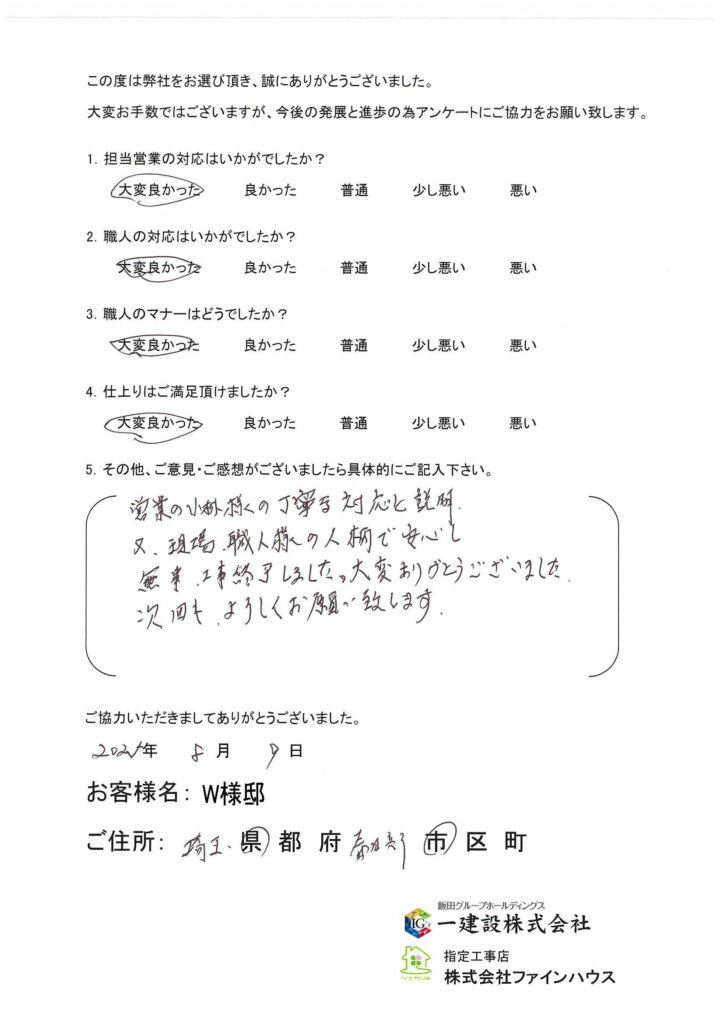 この度は弊社をお選び頂き、誠にありがとうございました。
大変お手数ではございますが、今後の発展と進歩の為アンケートにご協力をお願い致します。
1. 担当営業の対応はいかがでしたか？
大変良かった 良かった 普通 少し悪い 悪い
2. 職人の対応はいかがでしたか？
大変良かった 良かった 普通 少し悪い 悪い
3. 職人のマナーはどうでしたか？
大変良かった 良かった 普通 少し悪い 悪い
4. 仕上りはご満足頂けましたか？
大変良かった 良かった 普通 少し悪い 悪い
5. その他、ご意見・ご感想がございましたら具体的にご記入下さい。
営業の小林様の丁寧な対応と説明.
又、現場、職人様の人柄で安心し
無事、工事終了しました。大変ありがとうございました.
次回も、よろしくお願い致します.
ご協力いただきましてありがとうございました。
年 8月 9日
お客様名： W様邸
ご住所： 埼玉 県 都 府 春日部 市 区 町
飯田グループホールディングス
IG
一建設株式会社
指定工事店
株式会社ファインハウス